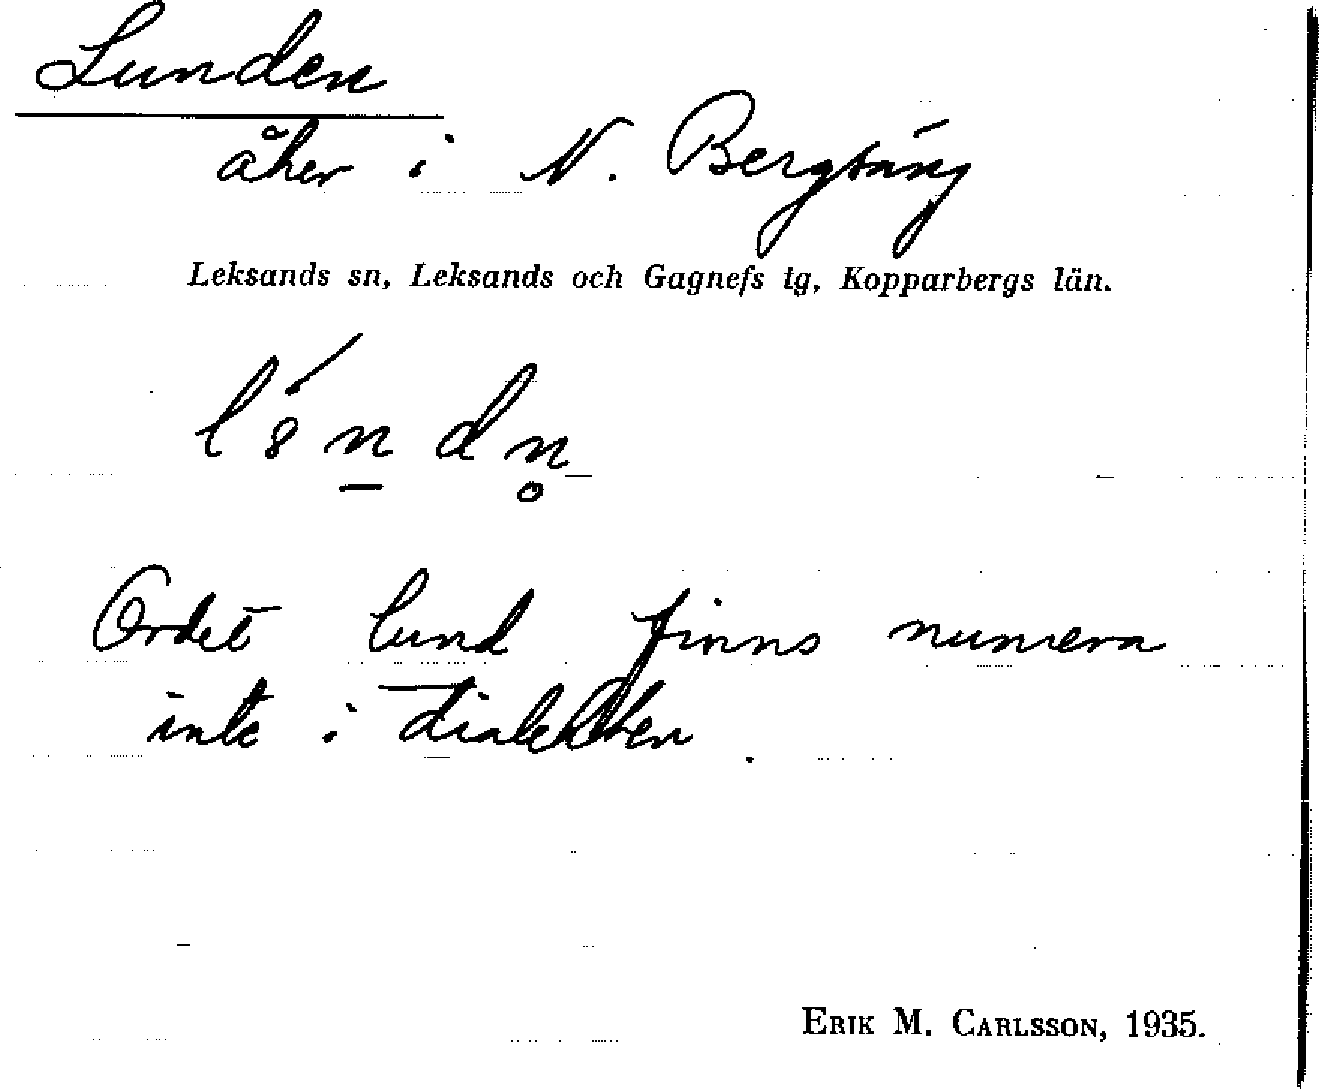 Lunden
åker i N. Bergsäng
Leksands sn, Leksands och Gagnefs tg, Kopparbergs län.
Ordet lund finns numera
inte i dialekten.
ERIK M. CARLSSON, 1935.